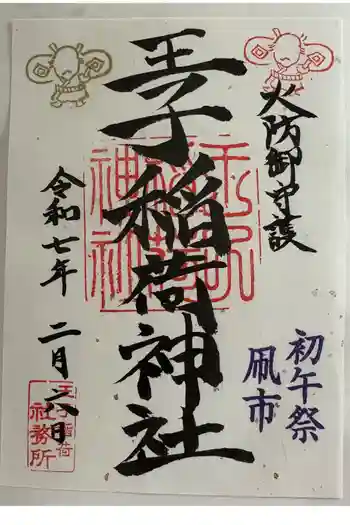 火防御守護
王子稲荷神社
令和七年 二月六日
初午祭
凧市
王子稲荷
社務所